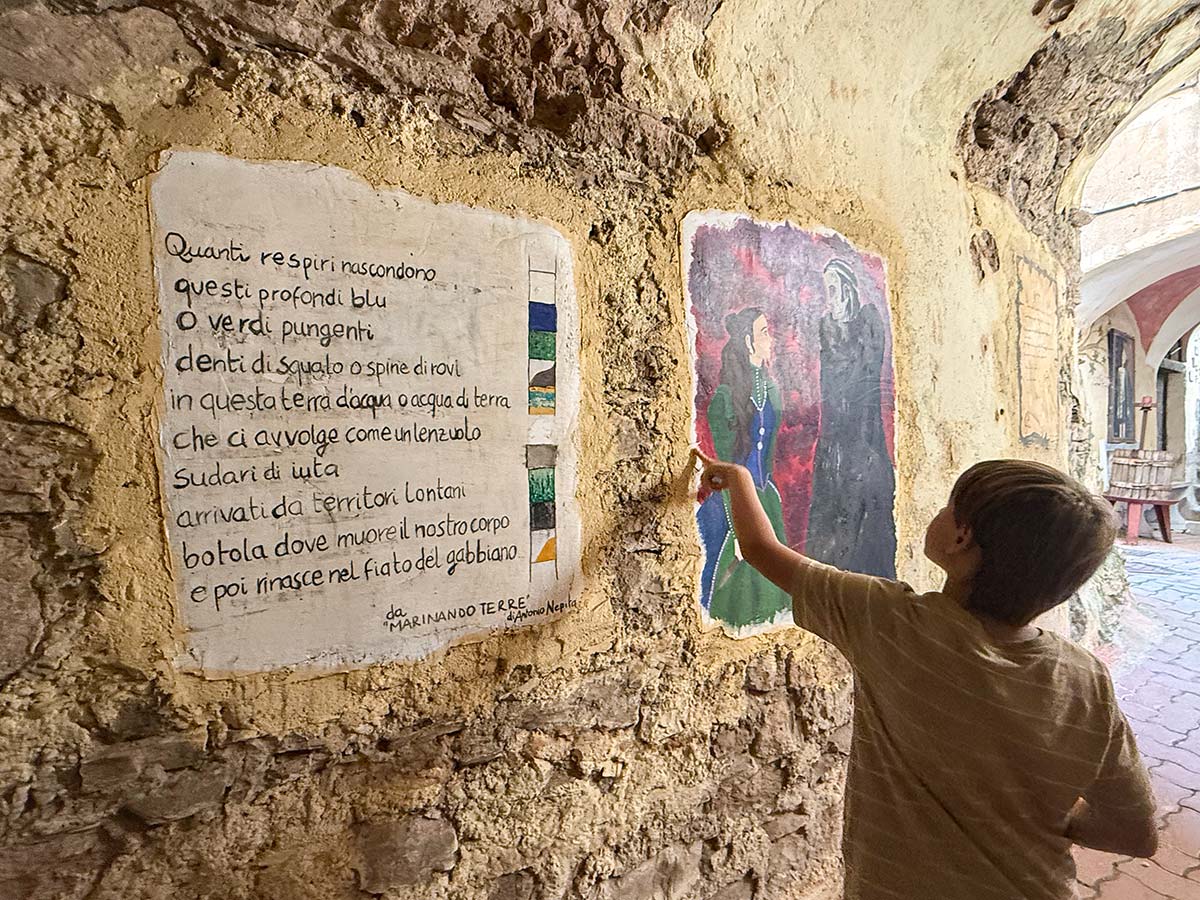 Quanti respiri nascondono
questi profondi blu
O verdi pungenti
denti di squalo o spine di rovi
in questa terra d'acqua o acqua di terra
che ci avvolge come un lenzuolo
sudari di iuta
arrivati da territori lontani
botola dove muore il nostro corpo
e poi rinasce nel fiato del gabbiano
da
"MARINANDO TERRE"
di Antonio Nepita